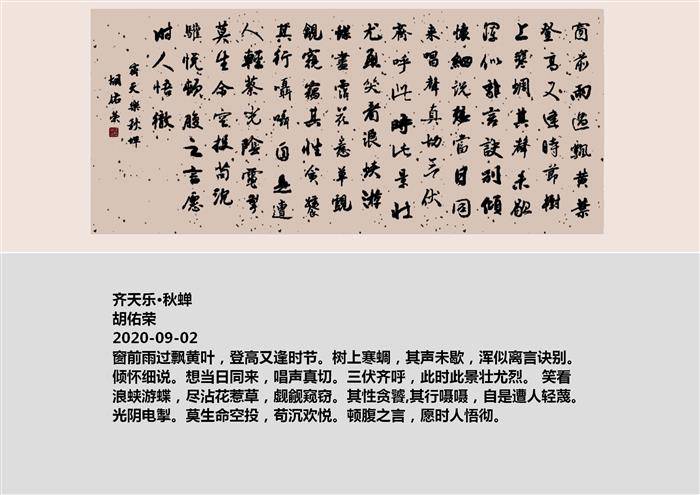 窗前雨過飄黄葉
登高又逢時節樹
上寒蜩其聲未歇
渾似離言訣别傾
懷細説想當日同
来唱聲真切三伏
齊呼此時此景壮
尤烈笑看浪蛱游
蝶盡霑花惹草覬
覦窺竊其性貪饕
其行囁囁自是遭
人輕蔑光陰電掣
莫生命空投苟沉
歡悦頓腹之言愿
时人悟徹
齊天樂秋蟬
胡佑荣
齐天乐·秋蝉
胡佑荣
2020-09-02
窗前雨过飘黄叶，登高又逢时节。树上寒蜩，其声未歇，浑似离言诀别。
倾怀细说。想当日同来，唱声真切。三伏齐呼，此时此景壮尤烈。 笑看
浪蛱游蝶，尽沾花惹草，觊觎窥窃。其性贪饕,其行嗫嗫，自是遭人轻蔑。
光阴电掣。莫生命空投，苟沉欢悦。顿腹之言，愿时人悟彻。